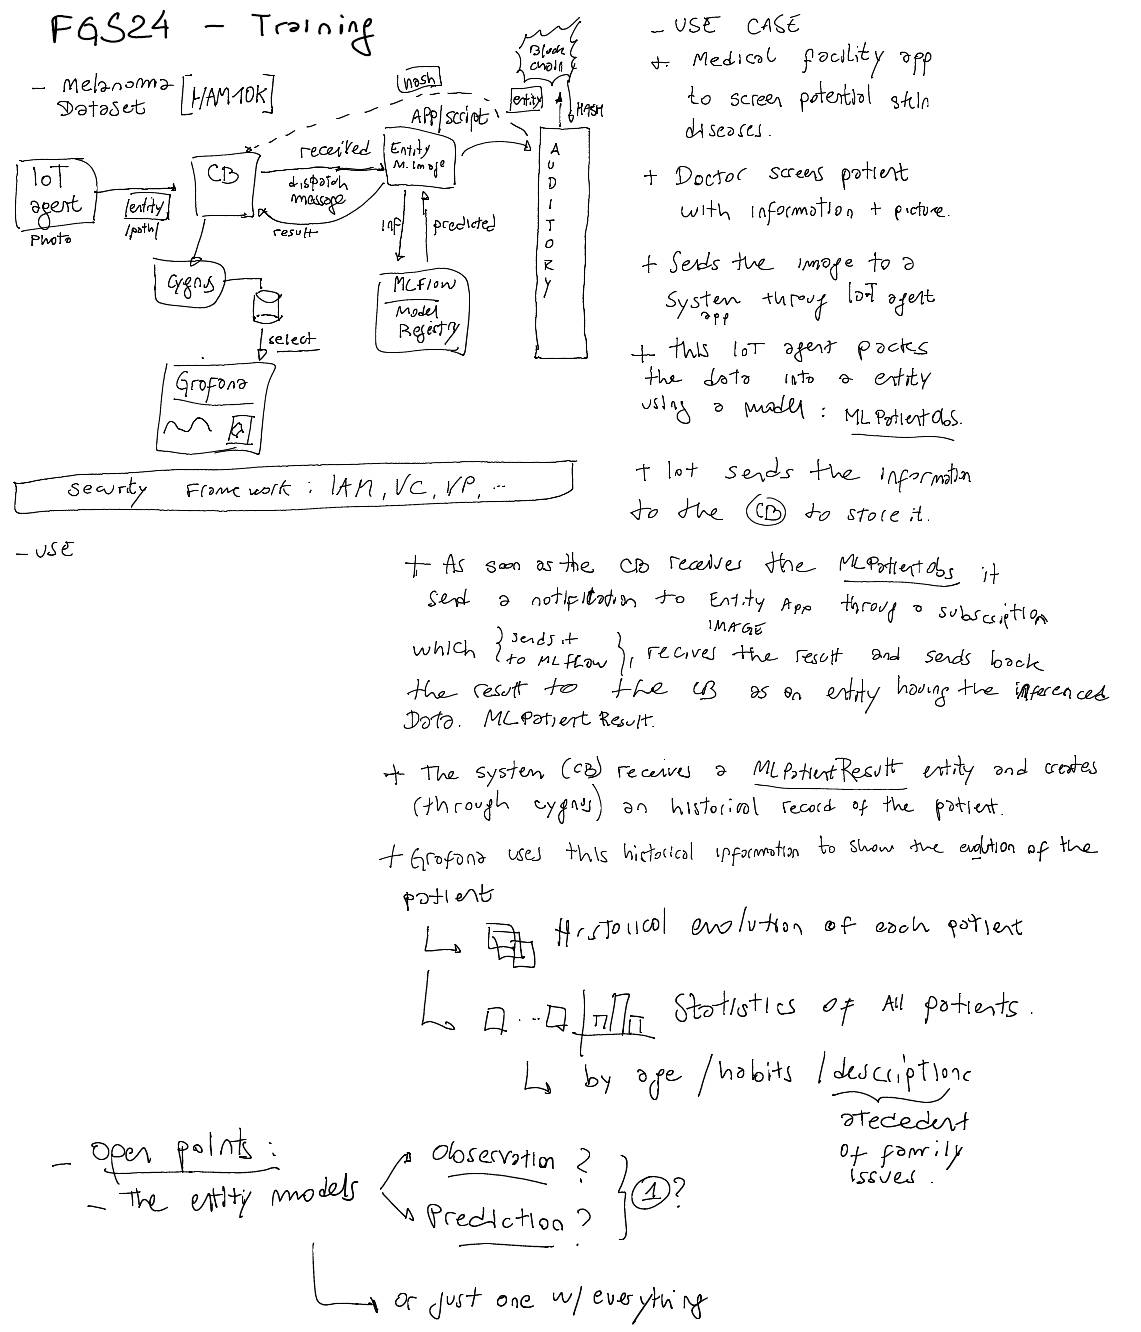 FGS24 - Training
- Melanoma
Dataset [HAM10K]
IoT
agent
Photo
/entity/
/path/
CB
received
dispatch
message
result
hash
APP/script
Entity
M. Image
inf
predicted
MLFlow
Model
Registry
Block
chain
entity
HASH
AUDITORY
Cygnus
select
Grafana
Security Framework : IAM, VC, VP, ...
- USE CASE
+ Medical facility app
to screen potential skin
diseases.
+ Doctor screens patient
with information + picture.
+ Sends the image to a
system throug IoT agent
app
+ this IoT agent packs
the data into a entity
using a model : MLPatientObs.
+ Iot sends the information
to the CB to store it.
- USE
+ As soon as the CB receives the MLPatientObs it
send a notification to Entity App throug a subscription
IMAGE
which { sends it
to MLflow }, recives the result and sends back
the result to the CB as an entity having the inferenced
Data. MLPatient Result.
+ The system (CB) receives a MLPatientResult entity and creates
(through cygnus) an historical record of the patient.
+ Grafana uses this historical information to show the evolution of the
patient
Historical evolution of each patient
... Statistics of All patients.
by age /habits /descriptionc
atecedent
of family
issues.
- Open points :
- The entity models
Observation ?
Prediction ?
1 ?
or just one w/ everything